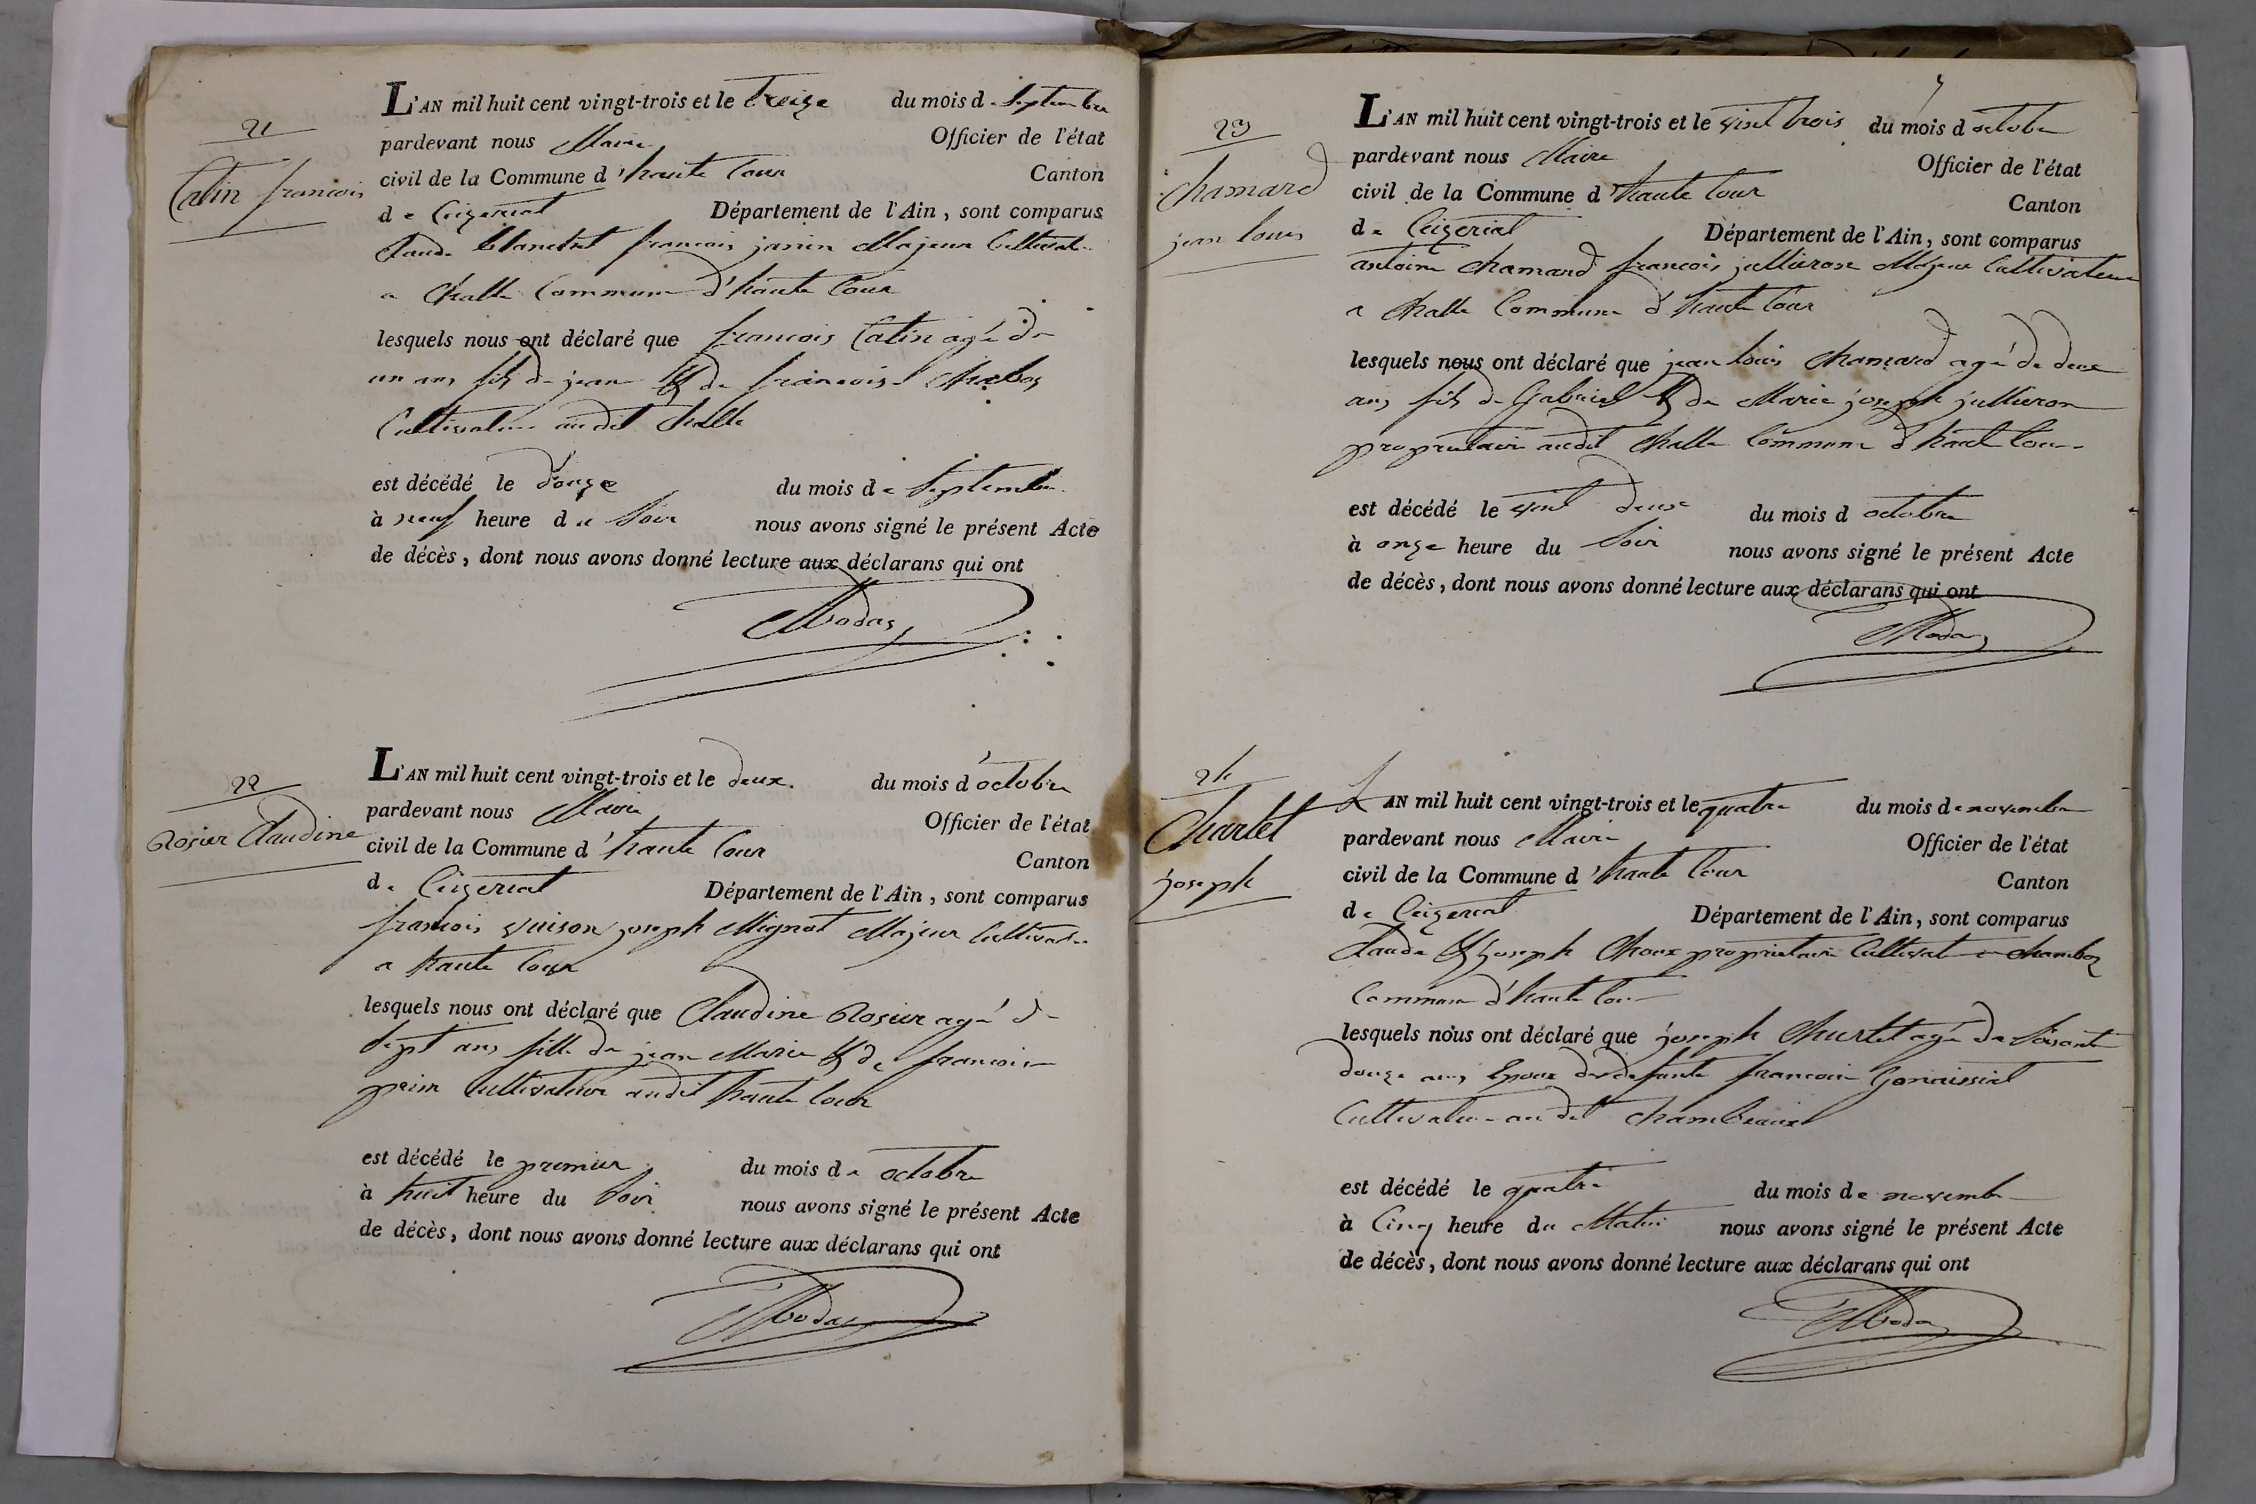 21
Catin françois
L'AN mil huit cent vingt-trois et le treize du mois de Septembre
pardevant nous Maire Officier de l'état
civil de la Commune d'haute Cour Canton
de Ceizeriat Département de l'Ain, sont comparus
Claude Blanchet françois janin Majeur Cultivat
a Challe Commune d'haute Cour
lesquels nous ont déclaré que francois Catin agé de
un ans fils de jean & de francoise
Cultivateur audit Challe
est décédé le douze du mois de Septembre
à neuf heure du Soir nous avons signé le présent Acte
de décès, dont nous avons donné lecture aux déclarans qui ont
Modas
22
Rosier Claudine
L'AN mil huit cent vingt-trois et le deux du mois d'octobre
pardevant nous Maire Officier de l'état
civil de la Commune d'haute Cour Canton
de Ceizeriat Département de l'Ain, sont comparus
francois vuison joseph Mignot Majeur Cultivat
a haute Cour
lesquels nous ont déclaré que Claudine Rosier agé de
Sept ans fille de jean Marie & de francoise
prim Cultivateur audit haute Cour
est décédé le premier du mois de octobre
à huit heure du Soir nous avons signé le présent Acte
de décès, dont nous avons donné lecture aux déclarans qui ont
Modas
23
Chamard
jean louis
L'AN mil huit cent vingt-trois et le vint trois du mois d'octobre
pardevant nous Maire Officier de l'état
civil de la Commune d'haute Cour Canton
de Ceizeriat Département de l'Ain, sont comparus
antoine Chamard francois jullieron Majeur Cultivateur
a Challe Commune d'haute Cour
lesquels nous ont déclaré que jean louis Chamard agé de deux
ans fils de Gabriel & de Marie joseph jullieron
propriétaire audit Challe Commune d'haute Cour
est décédé le vint deux du mois d octobre
à onze heure du Soir nous avons signé le présent Acte
de décès, dont nous avons donné lecture aux déclarans qui ont
Modas
24
Charlet
joseph
L'AN mil huit cent vingt-trois et le quatre du mois de novembre
pardevant nous Maire Officier de l'état
civil de la Commune d'haute Cour Canton
de Ceizeriat Département de l'Ain, sont comparus
Claude & joseph Choux proprietaire Cultivat a Chambo
Commune d'haute Cour
lesquels nous ont déclaré que joseph Churlet agé de Soisante
douze ans Epoux de defunte francoise
Cultivateur audit
est décédé le quatre du mois de novembre
à Cinq heure du Matin nous avons signé le présent Acte
de décès, dont nous avons donné lecture aux déclarans qui ont
Modas